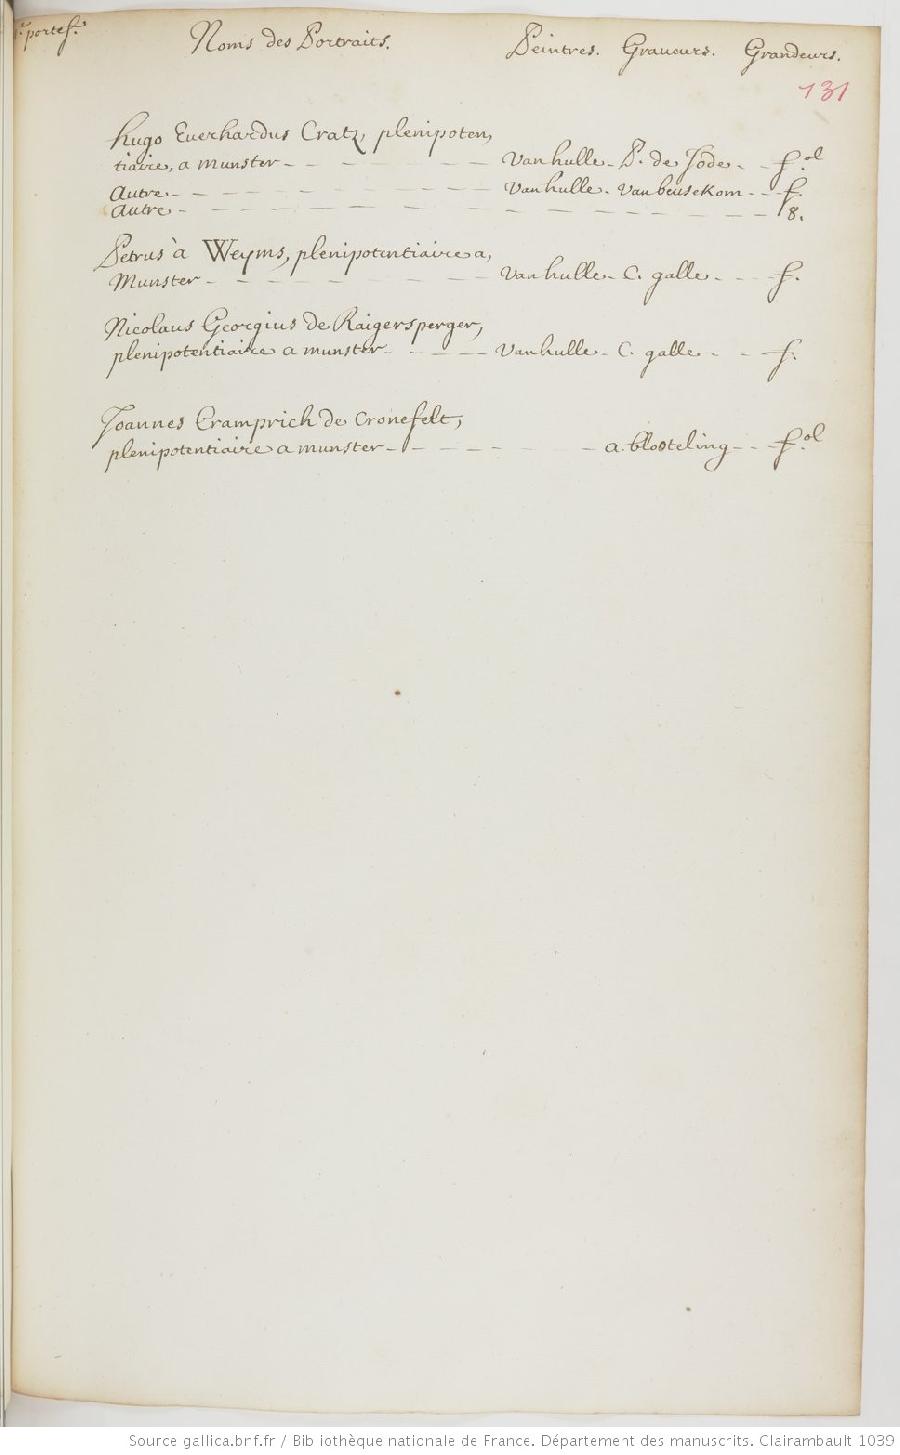 portef.e Noms des Portraits. Peintres. Graueurs. Grandeurs.
131
Hugo Euerhardus Cratz, plenipoten,
tiaire, a munster - - - - - - Vanhulle - P. de Jode - - f.ol
Autre - - - - - - - - Vanhulle. Vanbeusekom - - f.
Autre - - - - - - - - - - - - - - - 8.
Petrus à Weyms, plenipotentiaire a,
Munster - - - - - - - - Vanhulle - C. galle - - - f.
Nicolaus Georgius de Raigersperger,
plenipotentiaire a munster - - - - Vanhulle - C. galle - - - f.
Joannes Cramprich de Cronefelt,
plenipotentiaire a munster - - - - - - - a. blosteling - - - f.ol
Source gallica.bnf.fr / Bibliothèque nationale de France. Département des manuscrits. Clairambault 1039